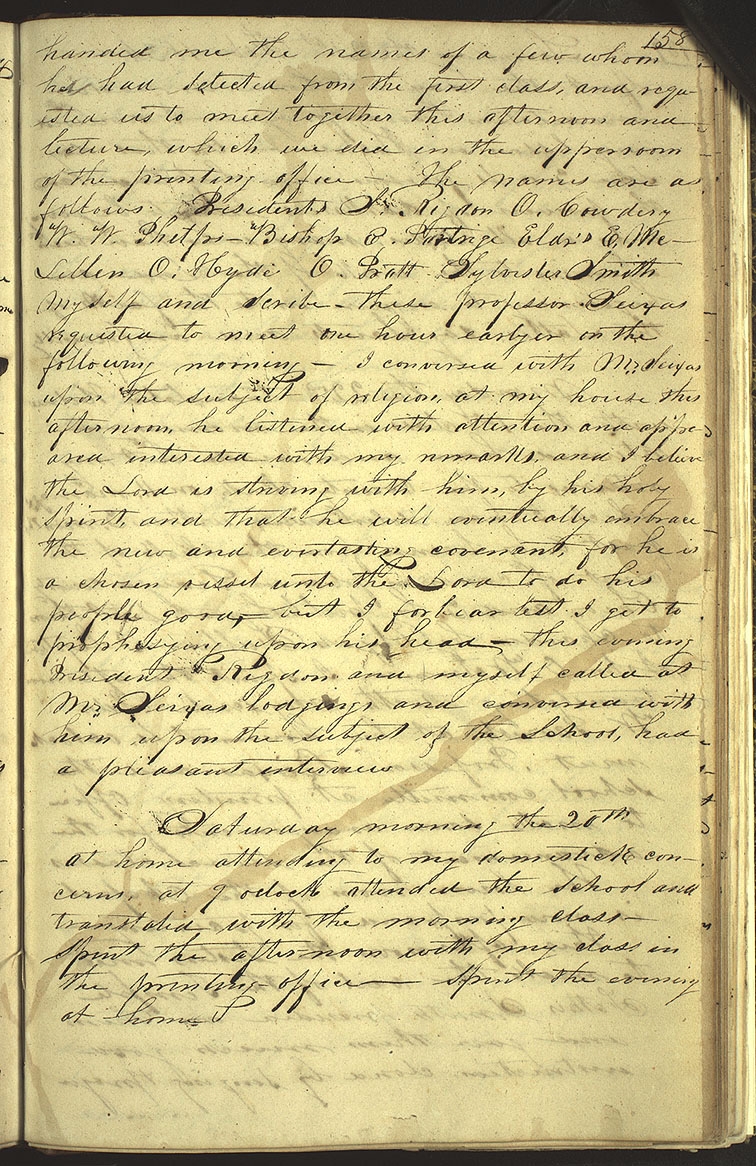 158
handed me the names of a few whom
he had selected from the first class, and requ-
ested us to meet together this afternoon and
lecture, which we did in the upper room
of the printing office — The names are as
follows. Presidents S. Rigdon O. Cowdery
W. W. Phelps — Bishop E. Partrige Eldr's E. Mc-
Lellen O. Hyde O. Pratt Sylvester Smith
Myself and Scribe — these professor Seixas
requested to meet one hour earlyer on the
following morning — I conversed with Mr. Seixas
upon the subject of religion, at my house this
afternoon, he listened with attention and appe-
ared interested with my remarks, and I believe
the Lord is striving with him, by his holy
spirit, and that he will eventually embrace
the new and everlasting covenant, for he is
a chosen vessel unto the Lord to do his
people good, — but I forbear lest I get to
prophesying upon his head — this evening
President Rigdon and myself called at
Mr. Seixas lodgings and conversed with
him upon the subject of the School, had
a pleasant interview
Saturday morning the 20th
at home attending to my domestick con-
cerns, at 9 oclock attended the school and
translated with the morning class —
spent the after-noon with my class in
the printing-office — spent the evening
at home